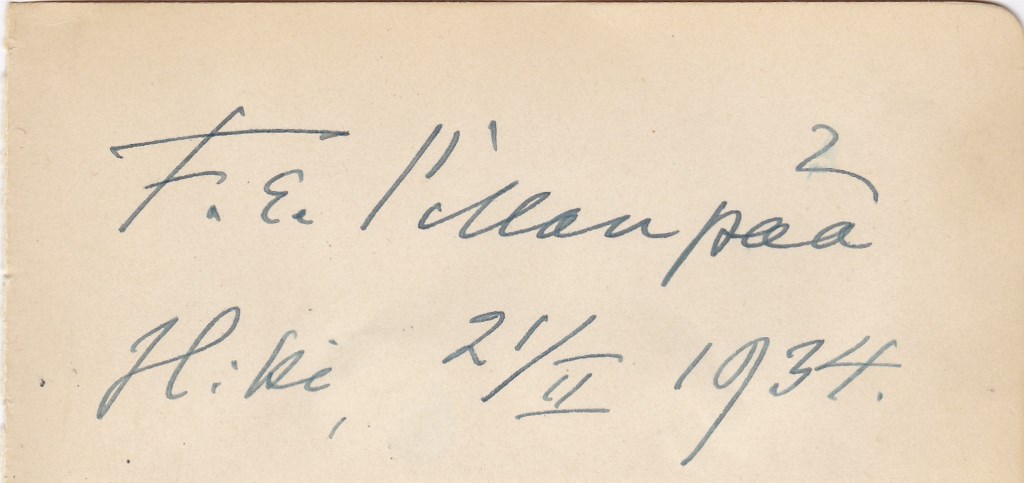 F. E. Sillanpää
H:ki, 21/II 1934.